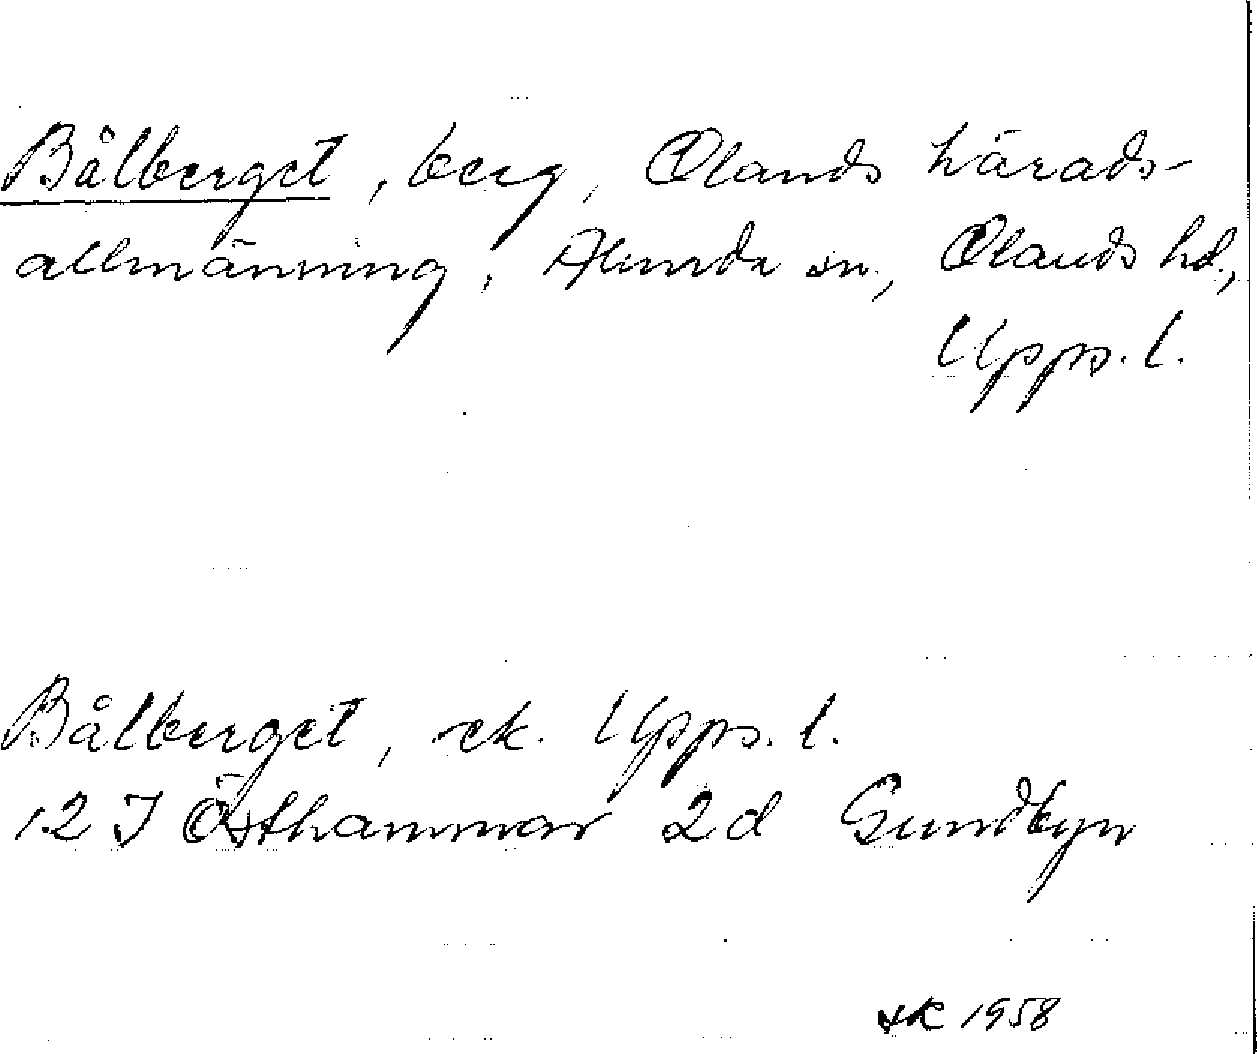 Bålberget, berg, Olands härads-
allmänning, Alunda sn., Olands hd.,
Upps. l.
Bålberget, ek. Upps. l.
12 I Östhammar 2d Gundbyn
EK 1958